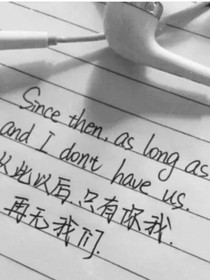 Since then, as long as
and I don't have us.
从此以后,只有你我.
再无我们.